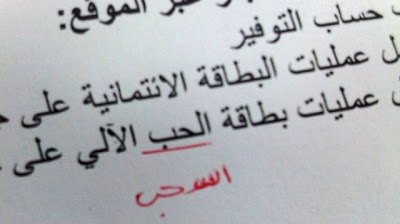 عبر الموقع:
حساب التوفير
عمليات البطاقة الائتمانية على
عمليات بطاقة الحب الآلي على
السحب